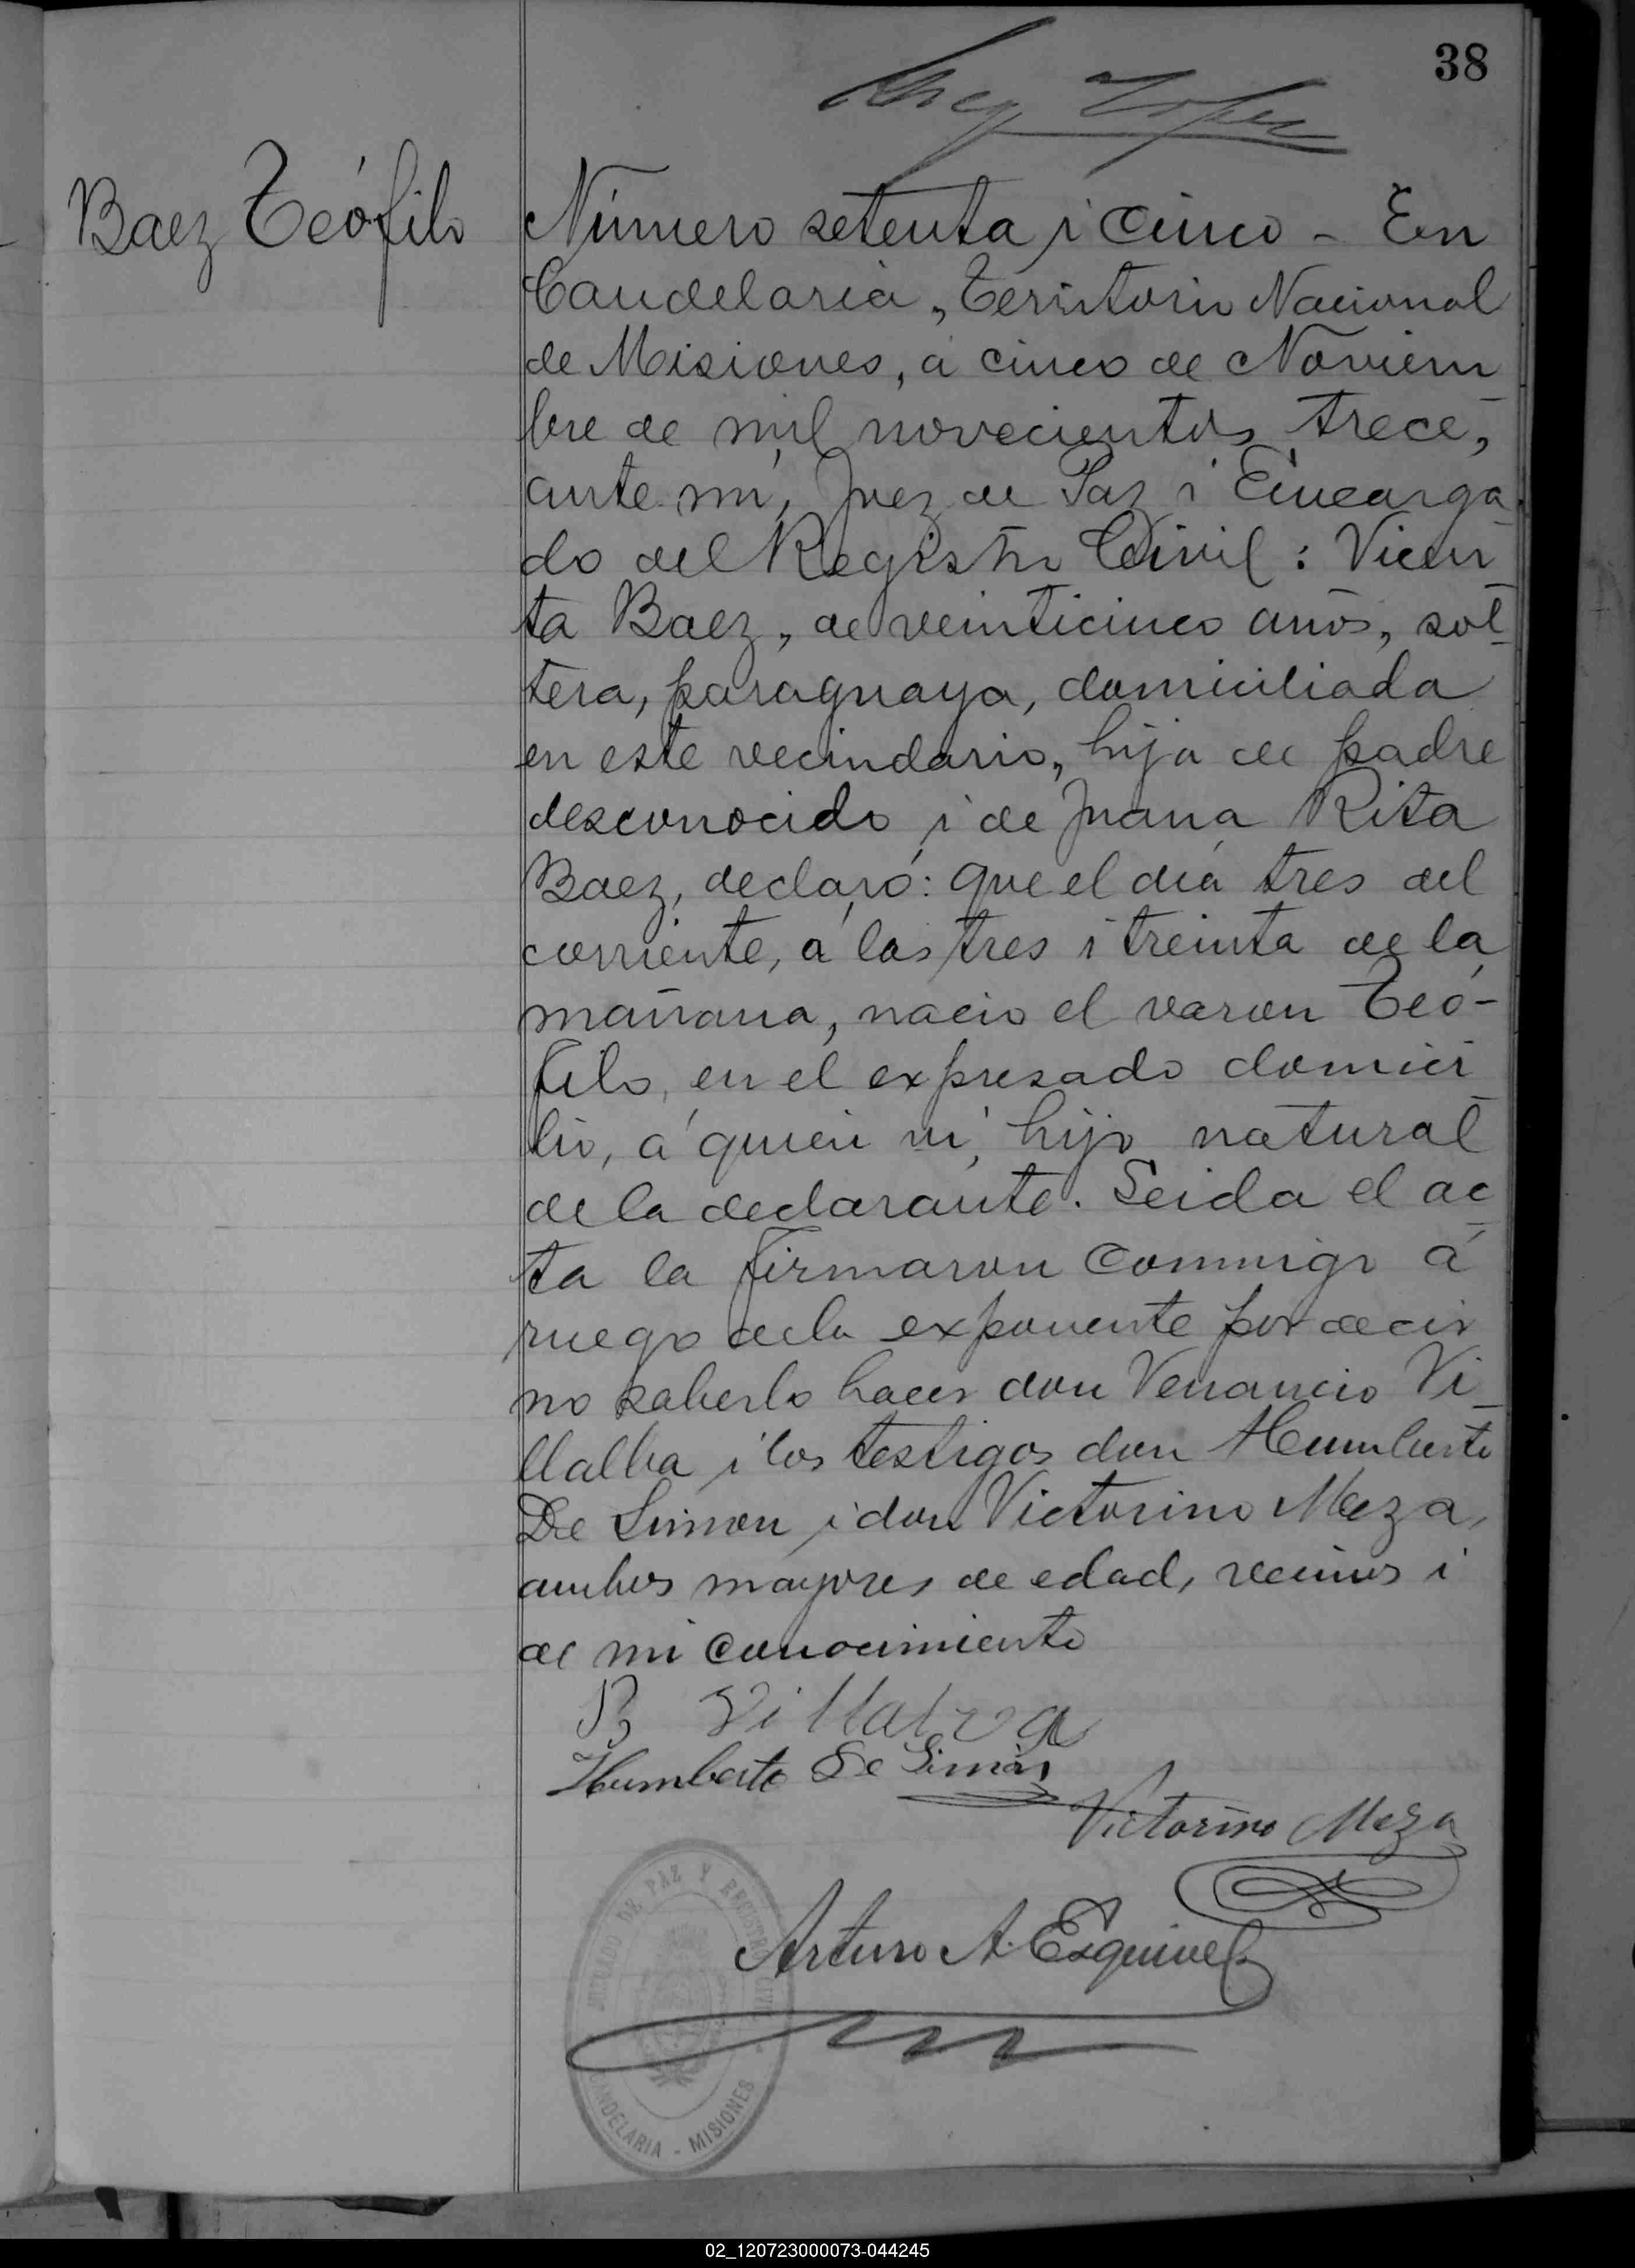 38
Baez Teófilo
Número setenta i cinco - En
Candelaria, Territorio Nacional
de Misiones, á cinco de Noviem
bre de mil novecientos trece,
ante mí, Juez de Paz i Encarga
do del Registro Civil: Vicen
ta Baez, de veinticinco años, sol
tera, paraguaya, domiciliada
en este vecindario, hija de padre
desconocido i de Juana Rita
Baez, declaró: que el día tres del
corriente, á las tres i treinta de la
mañana, nacio el varon Teó-
filo, en el expresado domici
lio, á quien vi, hijo natural
de la declarante. Leida el ac
ta la firmaron conmigo á
ruego de la exponente por decir
no saberlo hacer don Venancio Vi
llalba i los testigos don Humberto
De Simon i don Victorino Meza,
ambos mayores de edad, vecinos i
de mi conocimiento
Villalva
Humberto De Simon
Victorino Meza
Arturo A. Esquivel
JUZGADO DE PAZ Y REGISTRO CIVIL
CANDELARIA - MISIONES
02_120723000073-044245